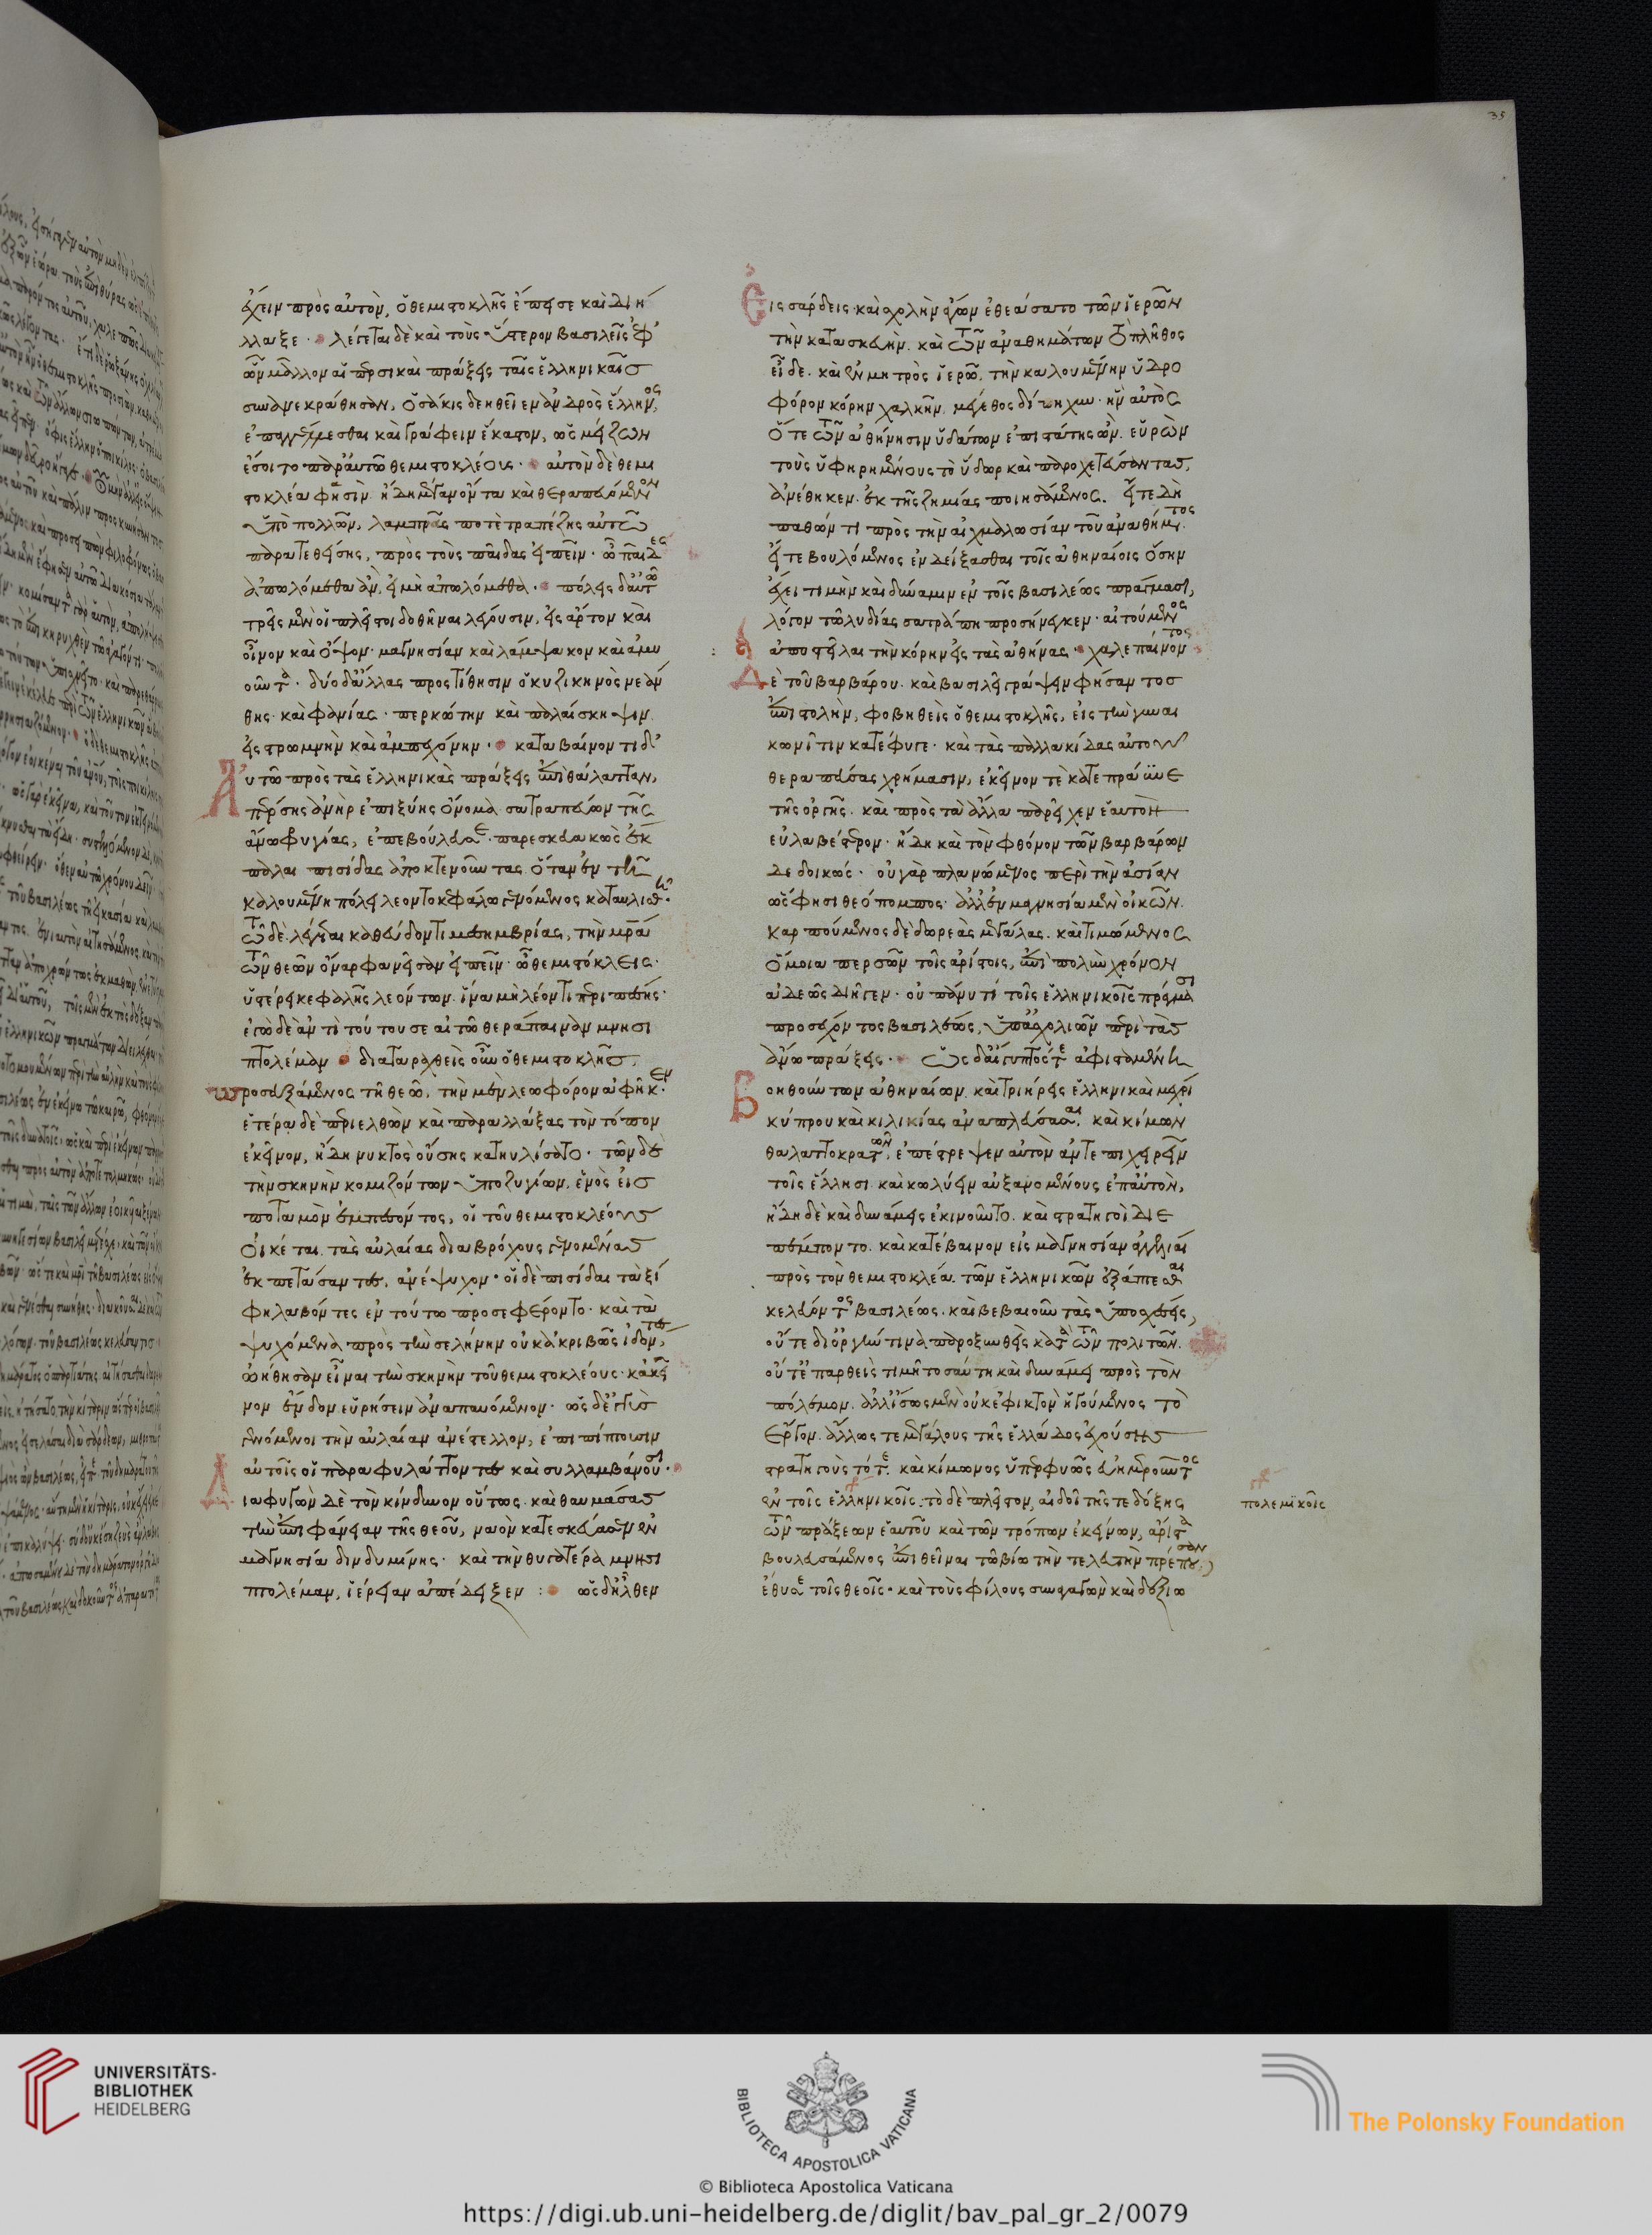 ἔχειν πρὸς αὐτὸν, ὁ θεμιστοκλῆς ἔπεισε καὶ διή
λλαξε · λέγεται δὲ καὶ τοὺς ὕστερον βασιλεῖς ἐφ'
ὧν μᾶλλον αἱ περσικαὶ πράξεις ταῖς ἑλληνικαῖς
συνανεκράθησαν, ὁσάκις δεηθεῖεν ἀνδρὸς ἕλληνος,
ἐπαγγέλεσθαι καὶ γράφειν ἕκαστον, ὡς μείζων
ἔσοιτο παρ' αὐτῶ θεμιστοκλέους · αὐτὸν δὲ θεμι
στοκλέα φασὶν ἤδη μέγαν ὄντα καὶ θεραπευόμενον
ὑπὸ πολλῶν, λαμπρᾶς ποτὲ τραπέζης αὐτῶ
παρατεθείσης, πρὸς τοὺς παῖδας εἰπεῖν · ὦ παῖδες
ἀπωλόμεθα ἂν, εἰ μὴ ἀπωλόμεθα · πόλεις δ' αὐτῶ
τρεῖς μὲν οἱ πλεῖστοι δοθῆναι λέγουσιν, εἰς ἄρτον καὶ
οἶνον καὶ ὄψον · μαγνησίαν καὶ λάμψακον καὶ ἀμυ
οῦντα · δύο δ' ἄλλας προστίθησιν ὁ κυζικηνὸς νεάν
θης · καὶ φανίας · περκώτην καὶ παλαίσκηψιν
εἰς στρωμνὴν καὶ ἀμπεχόνην · καταβαίνοντι δ'
Αὐτῶ πρὸς τὰς ἑλληνικὰς πράξεις ἐπὶ θάλατταν,
πέρσης ἀνὴρ ἐπιξύης ὄνομα σατραπεύων τῆς
ἄνω φρυγίας, ἐπεβούλευσε παρεσκευακὼς ἐκ
πάλαι πισίδας ἀποκτενοῦντας ὅταν ἐν τῆ
καλουμένη πόλει λεοντοκεφάλω γενόμενος καταυλισθῆ ·
τῶ δὲ λέγεται καθεύδοντι μεσημβρίας, τὴν μητέρα
τῶν θεῶν ὄναρ φανεῖσαν εἰπεῖν · ὦ θεμιστόκλεις ·
ὑστέρει κεφαλῆς λεόντων ἵνα μὴ λέοντι περιπέσης ·
ἐγὼ δὲ ἀντὶ τούτου σε αἰτῶ θεράπαιναν μνησι
πτολέμαν · διαταραχθεὶς οὖν ὁ θεμιστοκλῆς,
Προσευξάμενος τῆ θεῶ, τὴν μὲν λεωφόρον ἀφῆκεν ·
ἑτέρα δὲ περιελθὼν καὶ παραλλάξας τὸν τόπον
ἐκεῖνον, ἤδη νυκτὸς οὔσης κατηυλίσατο · τῶν δὲ
τὴν σκηνὴν κομιζόντων ὑποζυγίων, ἑνὸς εἰς
ποταμὸν ἐμπεσόντος, οἱ τοῦ θεμιστοκλέους
οἰκέται τὰς αὐλαίας διαβρόχους γενομένας
ἐκπετάσαντες, ἀνέψυχον · οἱ δὲ πισίδαι τὰ ξί
φη λαβόντες ἐν τούτω προσεφέροντο · καὶ τὰ
ψυχόμενα πρὸς τὴν σελήνην οὐκ ἀκριβῶς ἰδόντες,
ὠήθησαν εἶναι τὴν σκηνὴν τοῦ θεμιστοκλέους · κἀκεῖ
νον ἔνδον εὑρήσειν ἀναπαυόμενον · ὡς δὲ ἐγγὺς
γενόμενοι τὴν αὐλαίαν ἀνέστελλον, ἐπιπίπτουσιν
αὐτοῖς οἱ παραφυλάττοντες καὶ συλλαμβάνουσι ·
Διαφυγὼν δὲ τὸν κίνδυνον οὕτως · καὶ θαυμάσας
τὴν ἐπιφάνειαν τῆς θεοῦ, ναὸν κατεσκεύασεν ἐν
μαγνησία δινδυμίνης · καὶ τὴν θυγατέρα μνησι
πτολέμαν, ἱέρειαν ἀπέδειξεν : ὡς δ' ἦλθεν
Εἰς σάρδεις καὶ σχολὴν ἄγων ἐθεάσατο τῶν ἱερῶν
τὴν κατασκευὴν καὶ τῶν ἀναθημάτων τὸ πλῆθος
εἶδε · καὶ ἐν μητρὸς ἱερῶ, τὴν καλουμένην ὑδρο
φόρον κόρην χαλκῆν, μέγεθος δίπηχυν · ἣν αὐτὸς
ὅτε τῶν ἀθήνησιν ὑδάτων ἐπιστάτης ὢν, εὑρὼν
τοὺς ὑφηρημένους τὸ ὕδωρ καὶ παροχετεύοντας,
ἀνέθηκεν ἐκ τῆς ζημίας ποιησάμενος. εἴτε δὴ
παθών τι πρὸς τὴν αἰχμαλωσίαν τοῦ ἀναθήματος ·
εἴτε βουλόμενος ἐνδείξασθαι τοῖς ἀθηναίοις ὅσην
ἔχει τιμὴν καὶ δύναμιν ἐν τοῖς βασιλέως πράγμασι,
λόγον τῶ λυδίας σατράπη προσήνεγκεν · αἰτούμενος
ἀποστεῖλαι τὴν κόρην εἰς τὰς ἀθήνας · χαλεπαίνοντος
Δὲ τοῦ βαρβάρου καὶ βασιλεῖ γράψειν φήσαντος
ἐπιστολὴν, φοβηθεὶς ὁ θεμιστοκλῆς, εἰς τὴν γυναι
κωνῖτιν κατέφυγε · καὶ τὰς παλλακίδας αὐτοῦ
θεραπεύσας χρήμασιν, ἐκεῖνον τὲ κατεπράϋνε
τῆς ὀργῆς · καὶ πρὸς τὰ ἄλλα παρεῖχεν ἑαυτὸν
εὐλαβέστερον · ἤδη καὶ τὸν φθόνον τῶν βαρβάρων
δεδοικώς · οὐ γὰρ πλανώμενος περὶ τὴν ἀσίαν
ὥς φησι θεόπομπος · ἀλλ' ἐν μαγνησία μὲν οἰκῶν
καρπούμενος δὲ δωρεὰς μεγάλας · καὶ τιμώμενος
ὅμοια περσῶν τοῖς ἀρίστοις, ἐπὶ πολὺν χρόνον
ἀδεῶς διῆγεν · οὐ πάνυ τί τοῖς ἑλληνικοῖς πράγμασι
προσέχοντος βασιλέως, ὑπ' ἀσχολιῶν περὶ τὰς
ἄνω πράξεις · Ὡς δ' αἴγυπτός τε ἀφισταμένη
Βοηθούντων ἀθηναίων καὶ τριήρεις ἑλληνικαὶ μέχρι
κύπρου καὶ κιλικίας ἀναπλέουσαι, καὶ κίμων
θαλαττοκρατῶν, ἐπέτρεψεν αὐτὸν ἀντεπιχειρεῖν
τοῖς ἕλλησι καὶ κωλύειν αὐξανομένους ἐπ' αὐτὸν,
ἤδη δὲ καὶ δυνάμεις ἐκινοῦντο καὶ στρατηγοὶ διε
πέμποντο · καὶ κατέβαινον εἰς μαγνησίαν ἀγγελίαι
πρὸς τὸν θεμιστοκλέα τῶν ἑλληνικῶν ἐξάπτεσθαι
κελεύοντος βασιλέως · καὶ βεβαιοῦν τὰς ὑποσχέσεις,
οὔτε δι' ὀργήν τινα παροξυνθεὶς κατὰ τῶν πολιτῶν
οὔτε ἐπαρθεὶς τιμῆ τοσαύτη καὶ δυνάμει πρὸς τὸν
πόλεμον · ἀλλ' ἴσως μὲν οὐκ ἐφικτὸν ἡγούμενος τὸ
ἔργον, ἄλλως τε μεγάλους τῆς ἑλλάδος ἐχούσης
στρατηγοὺς τότε καὶ κίμωνος ὑπερφυῶς εὐημεροῦντος
ἐν τοῖς ἑλληνικοῖς · τὸ δὲ πλεῖστον, αἰδοῖ τῆς τε δόξης
τῶν πράξεων ἑαυτοῦ καὶ τῶν τρόπων ἐκείνων, ἄριστα
βουλευσάμενος ἐπιθεῖναι τῶ βίω τὴν τελευτὴν πρέπουσαν,
ἔθυσε τοῖς θεοῖς · καὶ τοὺς φίλους συναγαγὼν καὶ δεξιω
πολεμικοῖς
35
UNIVERSITÄTS-
BIBLIOTHEK
HEIDELBERG
BIBLIOTECA APOSTOLICA VATICANA
The Polonsky Foundation
© Biblioteca Apostolica Vaticana
https://digi.ub.uni-heidelberg.de/diglit/bav_pal_gr_2/0079